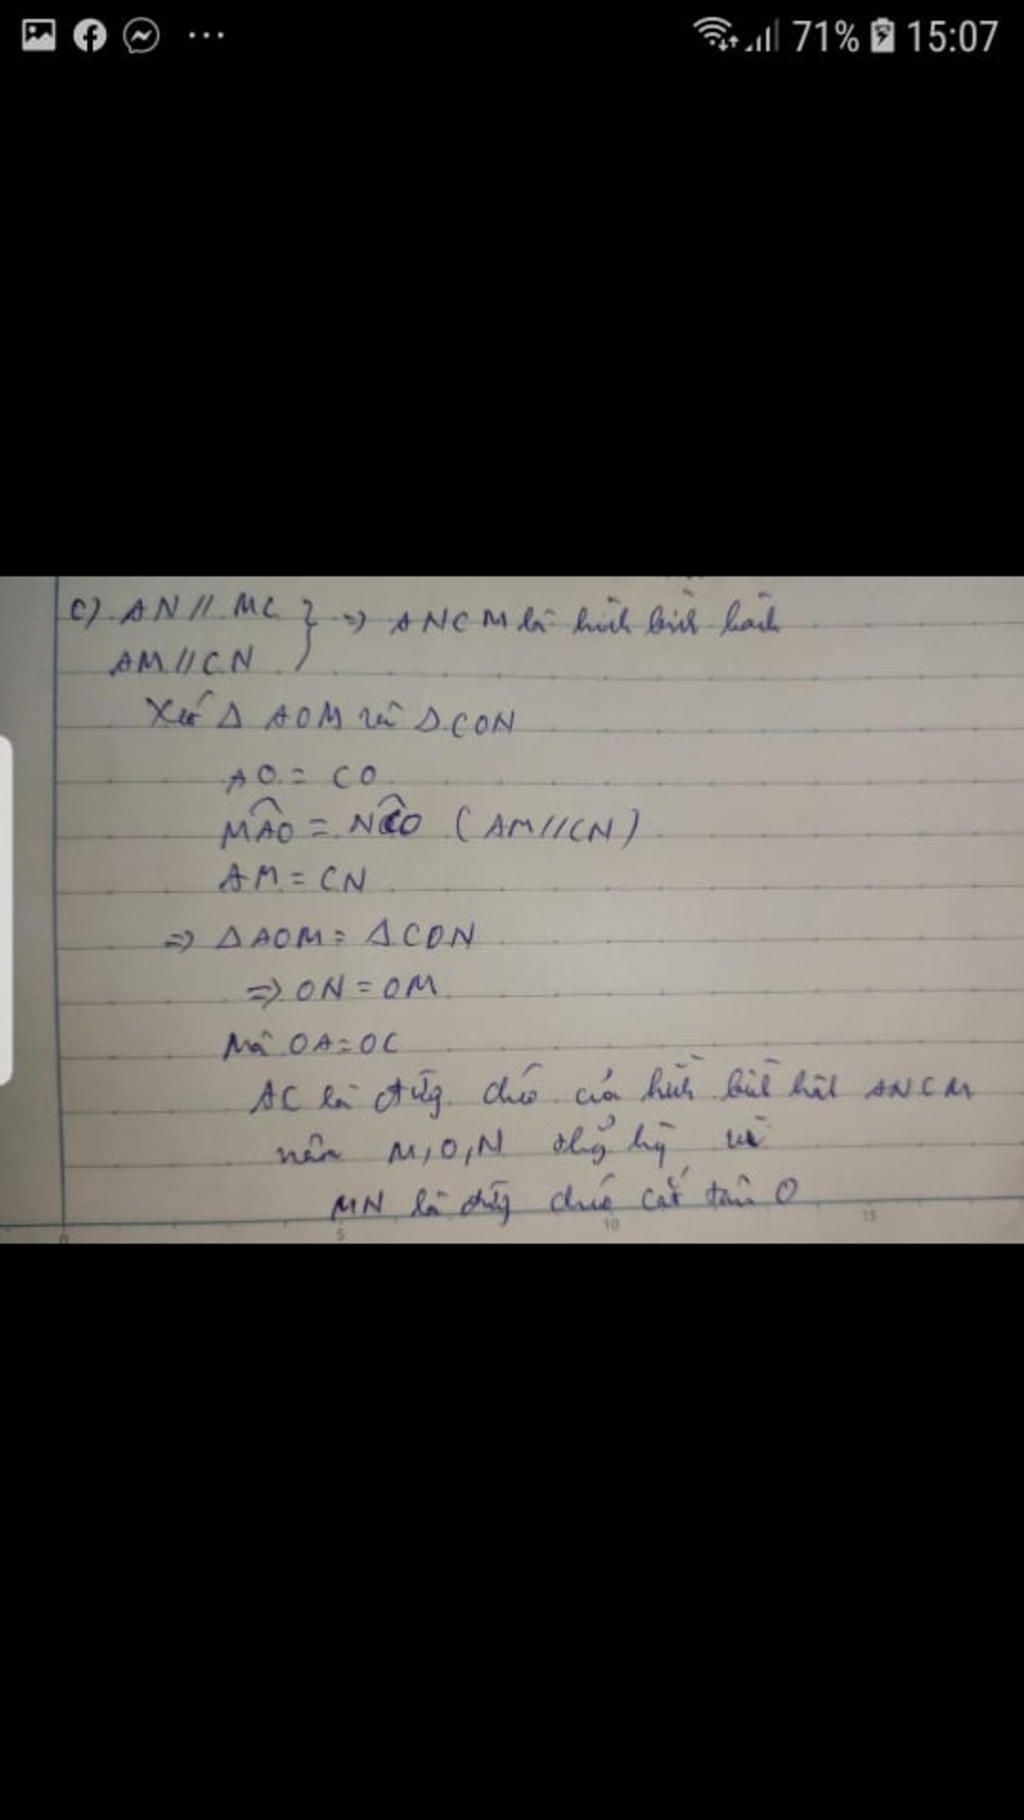 71% 15:07
C) AN // MC } => ANCM là hình bình hành
AM // CN
Xét Δ AOM và Δ CON
AO = CO
MAO = NCO (AM//CN)
AM = CN
=> Δ AOM = Δ CON
=> ON = OM
Mà OA = OC
AC là đường chéo của hình bình hành ANCM
nên M, O, N thẳng hàng và
MN là đường chéo cắt tại O
0 5 10 15